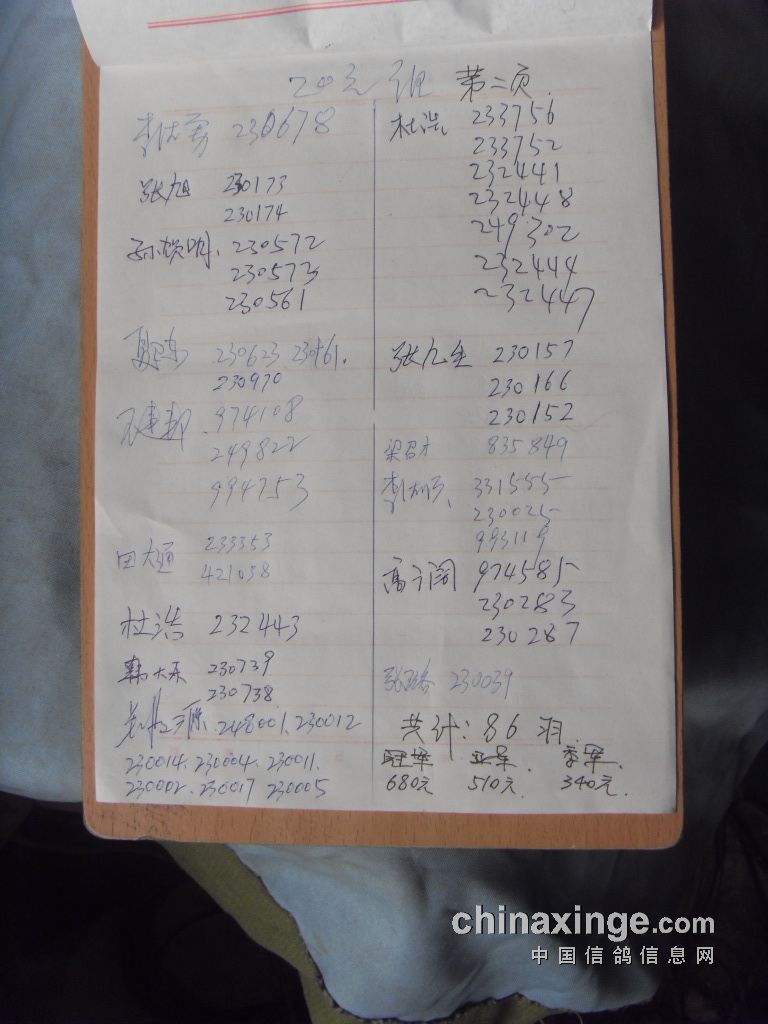 20元组 第二页.
李 230678
张旭 230173
230174
孙 230572
230573
230561
230623 230461.
230970
974108
249822
994753
田大 233353
421038
杜浩 232443
韩大 230739
230738
248001.230012
230014.230004.230011.
230002.230017 230005
杜浩 233756
233752
232441
232448
249302
232444
232447
张 230157
230166
230152
梁 835849
李 331555
230025
993119
高 974585
230283
230287
张 230039
共计: 86 羽.
冠军 亚军. 季军.
680元 510元. 340元.
chinaxinge.com
中国信鸽信息网